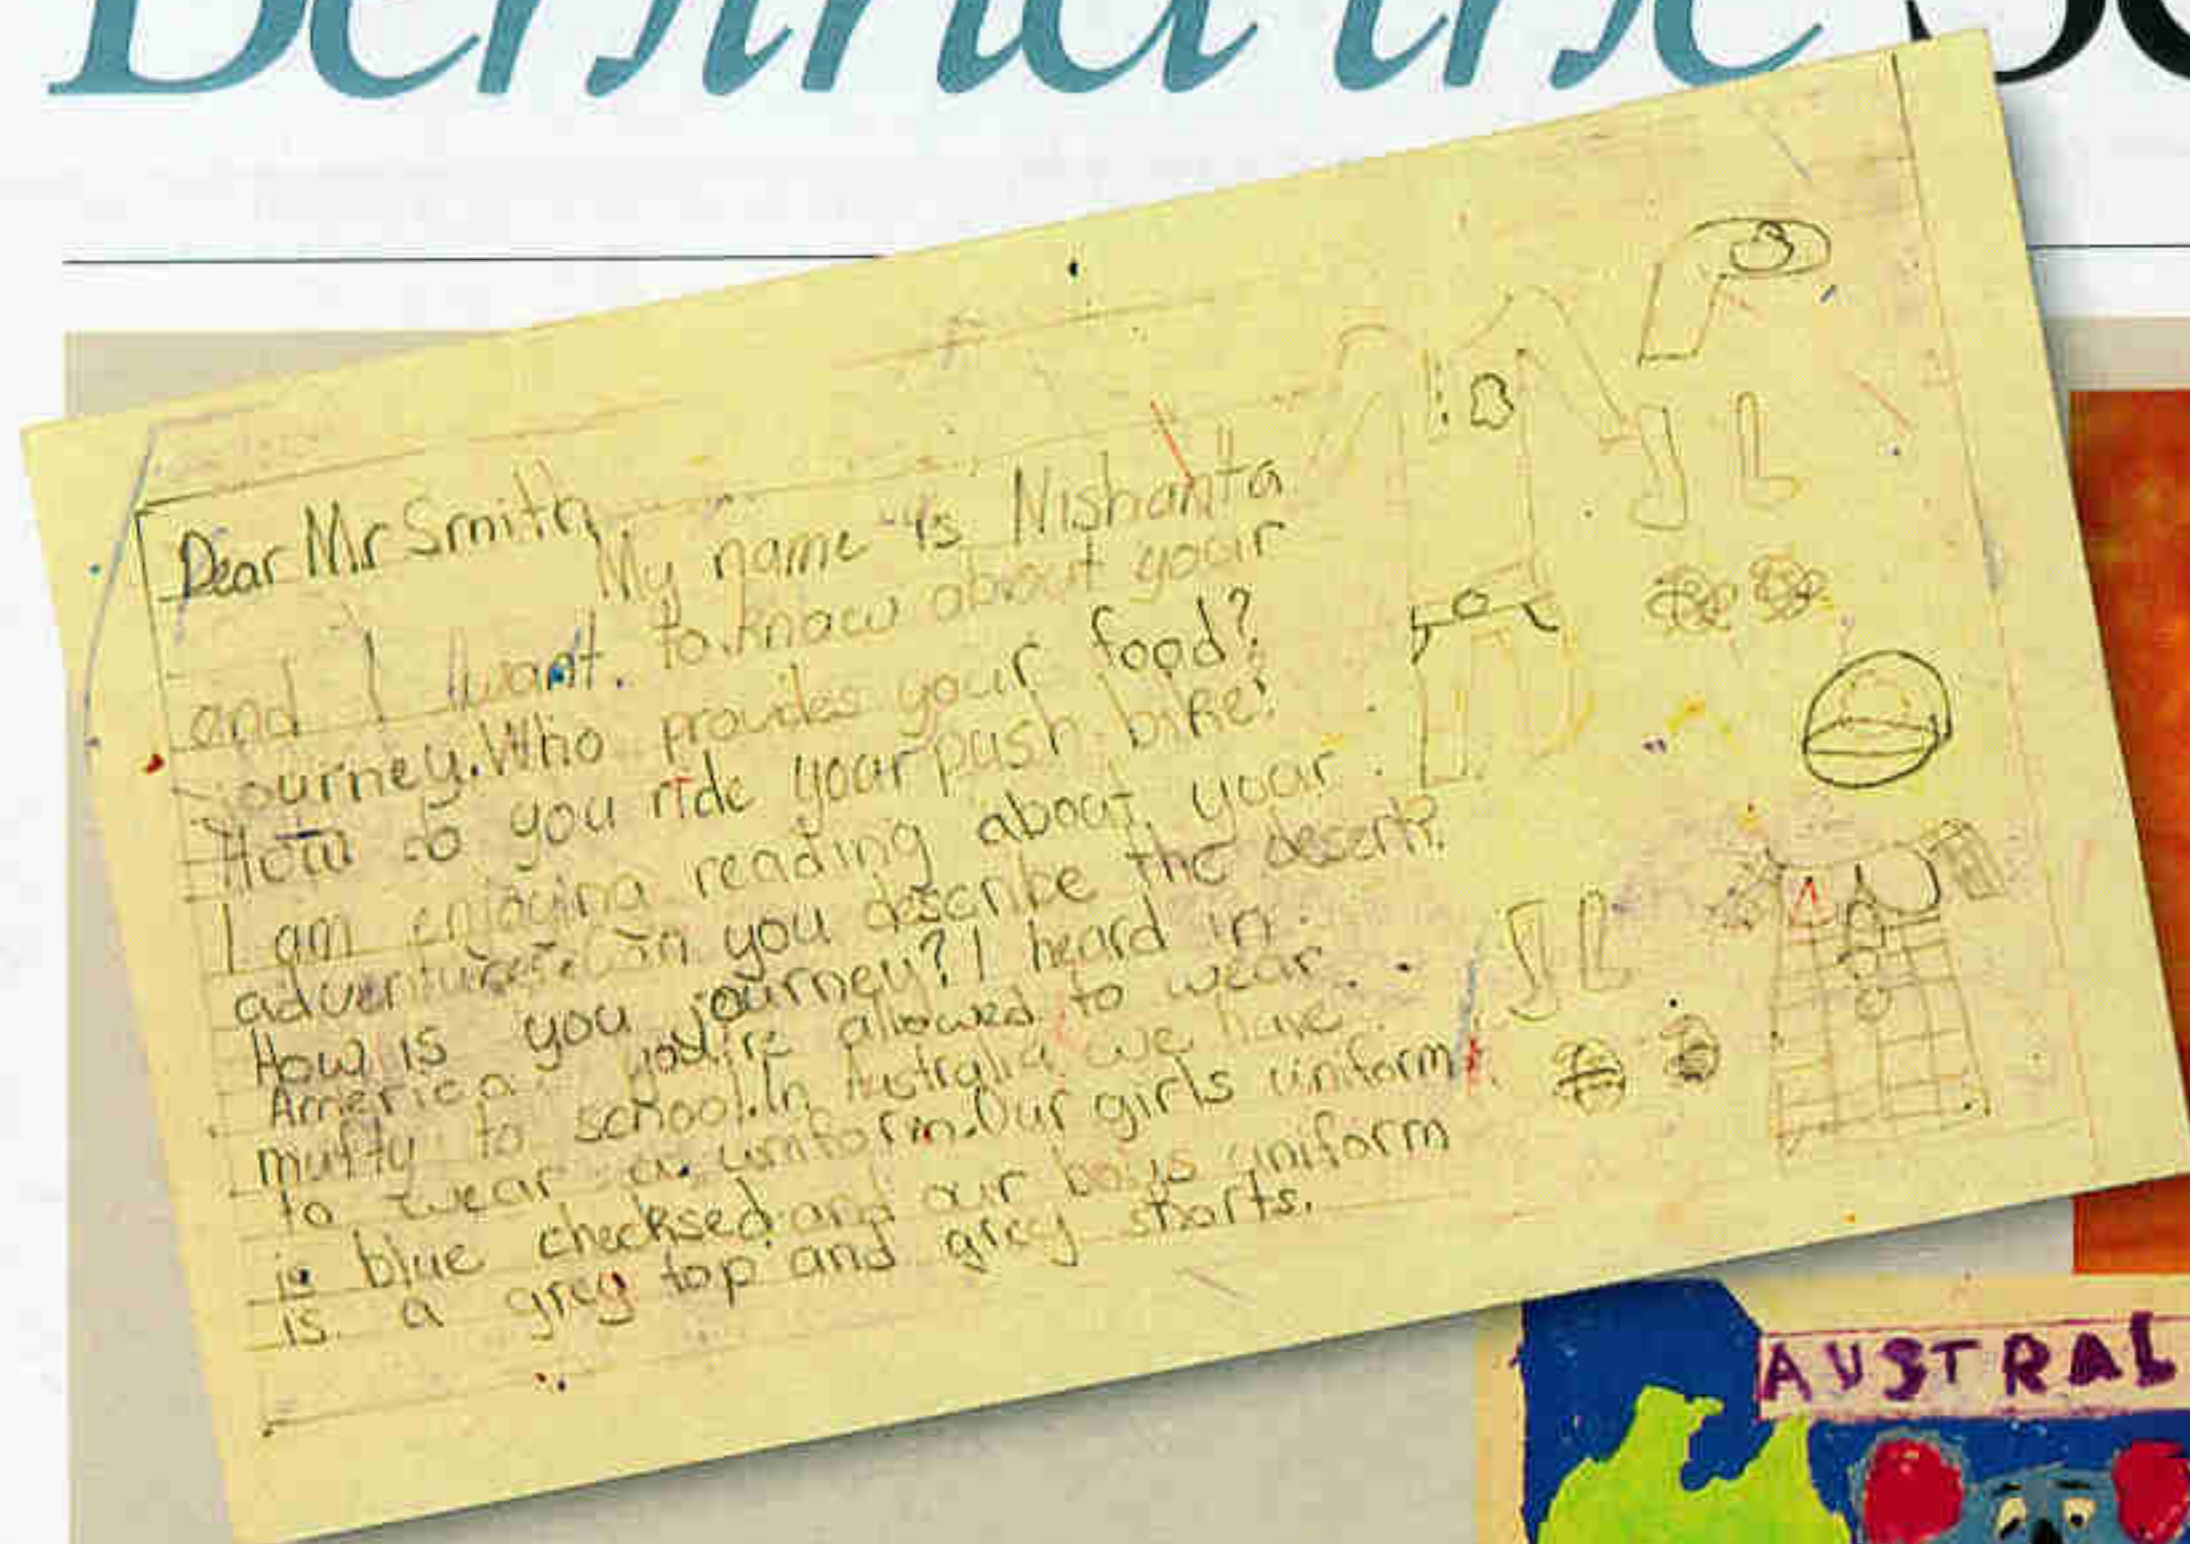 Behind the Sc
Dear Mr Smith
My name is Nishanta
and I want to know about your
journey. Who provides your food?
How do you ride your push bike?
I am enjoying reading about your
adventures. Can you describe the desert?
How is you journey? I heard in
America you're allowed to wear
mufty to school. In Australia we have
to wear a uniform. Our girls uniform
is blue checksed and our boys uniform
is a grey top and grey shorts.
AUSTRAL